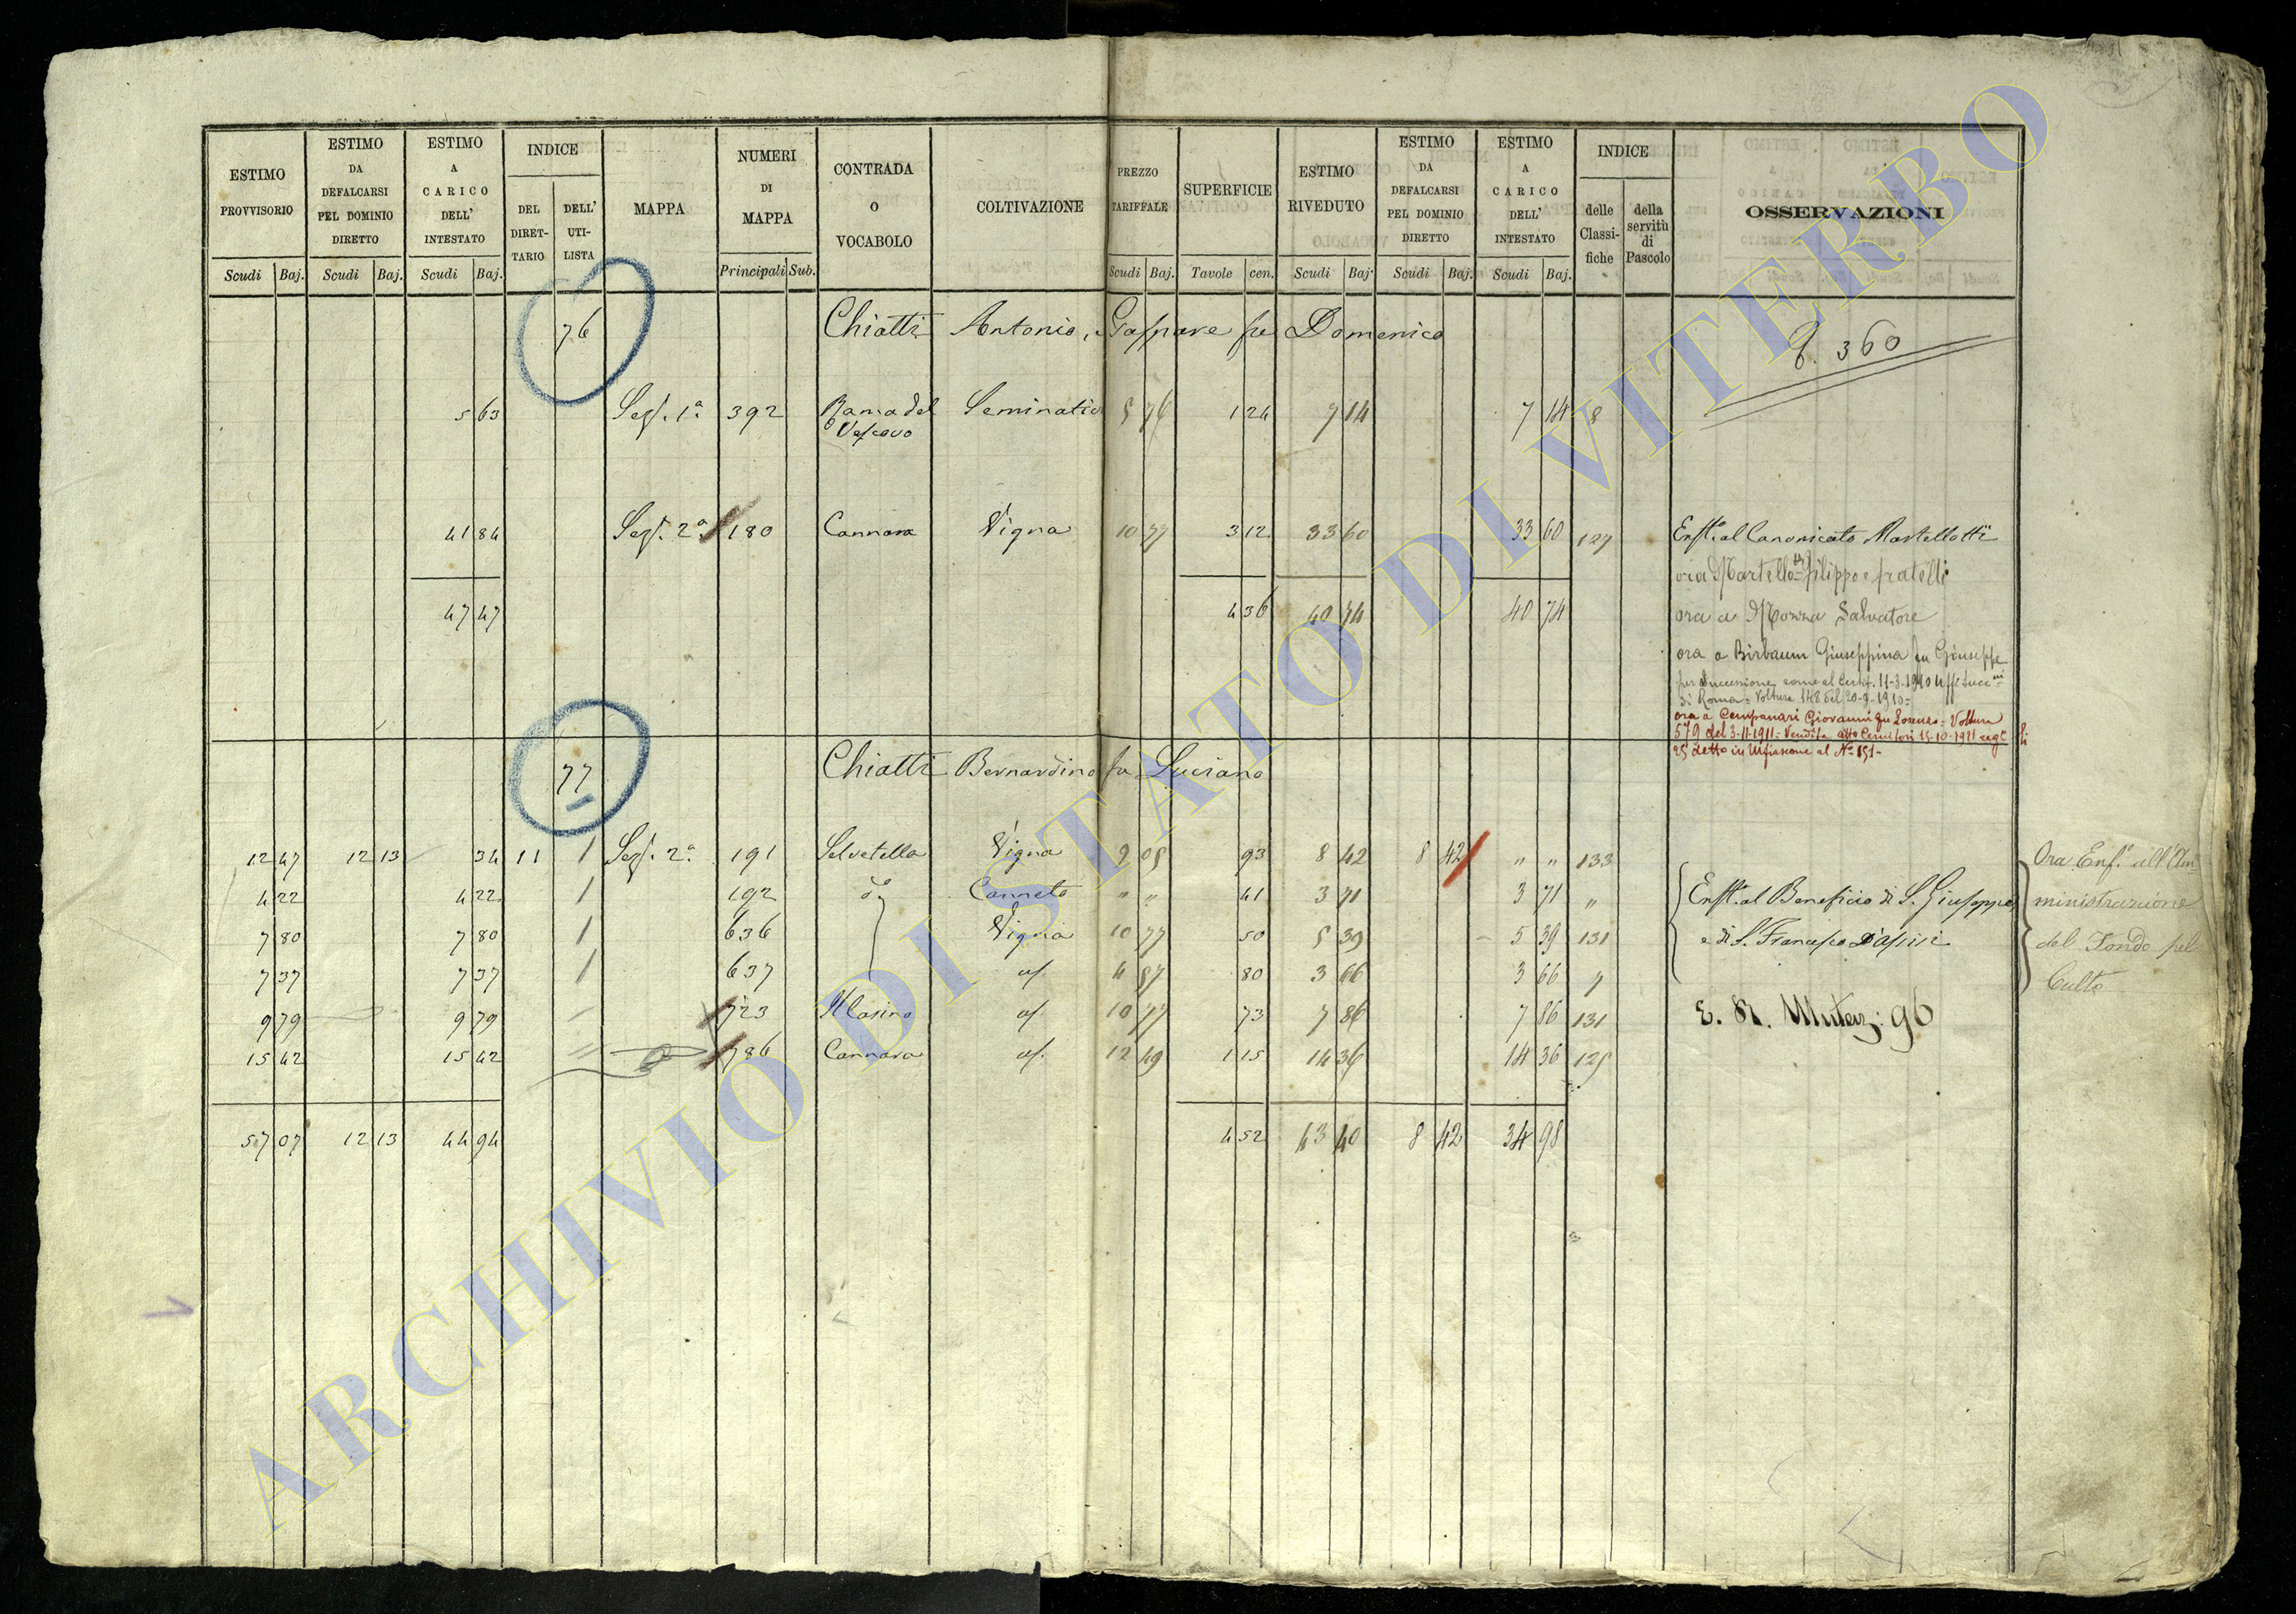 ESTIMO PROVVISORIO | ESTIMO DA DEFALCARSI PEL DOMINIO DIRETTO | ESTIMO A CARICO DELL' INTESTATO | INDICE | MAPPA | NUMERI DI MAPPA | CONTRADA O VOCABOLO | COLTIVAZIONE | PREZZO TARIFFALE | SUPERFICIE | ESTIMO RIVEDUTO | ESTIMO DA DEFALCARSI PEL DOMINIO DIRETTO | ESTIMO A CARICO DELL' INTESTATO | INDICE | OSSERVAZIONI
DEL DIRETTARIO | DELL' UTILISTA | delle Classifiche | della servitù di Pascolo
Scudi | Baj. | Scudi | Baj. | Scudi | Baj. | Principali | Sub. | Scudi | Baj. | Tavole | cen. | Scudi | Baj. | Scudi | Baj. | Scudi | Baj.
76 Chiatti Antonio, Gaspare fu Domenico
360
5 63 Sez. 1ª 392 Rama del Vescovo Seminativo 5 76 1 24 7 14 7 14 8
41 84 Sez. 2ª 180 Cannara Vigna 10 77 3 12 33 60 33 60 127 Enft. al Canonicato Martellotti
ora Martellotti Filippo e fratelli
47 47 4 36 40 74 40 74 ora a Mozza Salvatore
ora a Birbaum Giuseppina fu Giuseppe
per successione come al Certif. 11-3-1910 Uff. Succ.ni
di Roma = Voltura 148 del 20-9-1910=
ora a Campanari Giovanni fu Lorenzo = Voltura
579 del 3-11-1911= Vendita atto 15-10-1911 reg.
25 detto in Mfiascone al Nº 151-
77 Chiatti Bernardino fu Luciano
12 47 12 13 34 11 / Sez. 2ª 191 Selvetella Vigna 9 05 93 8 42 8 42 " " 133
4 22 4 22 / 192 dº Canneto " " 41 3 71 3 71 " Enft. al Beneficio di S. Giuseppe
7 80 7 80 / 636 Vigna 10 77 50 5 39 5 39 131 e di S. Francesco D'Assisi
7 37 7 37 / 637 4 87 80 3 66 3 66 "
9 79 9 79 723 Il Casino 10 77 73 7 86 7 86 131
15 42 15 42 786 Cannara 12 49 1 15 14 36 14 36 125
57 07 12 13 44 94 4 52 43 40 8 42 34 98
Ora Enf. all'Am
ministrazione
del Fondo pel
Culto
ARCHIVIO DI STATO DI VITERBO